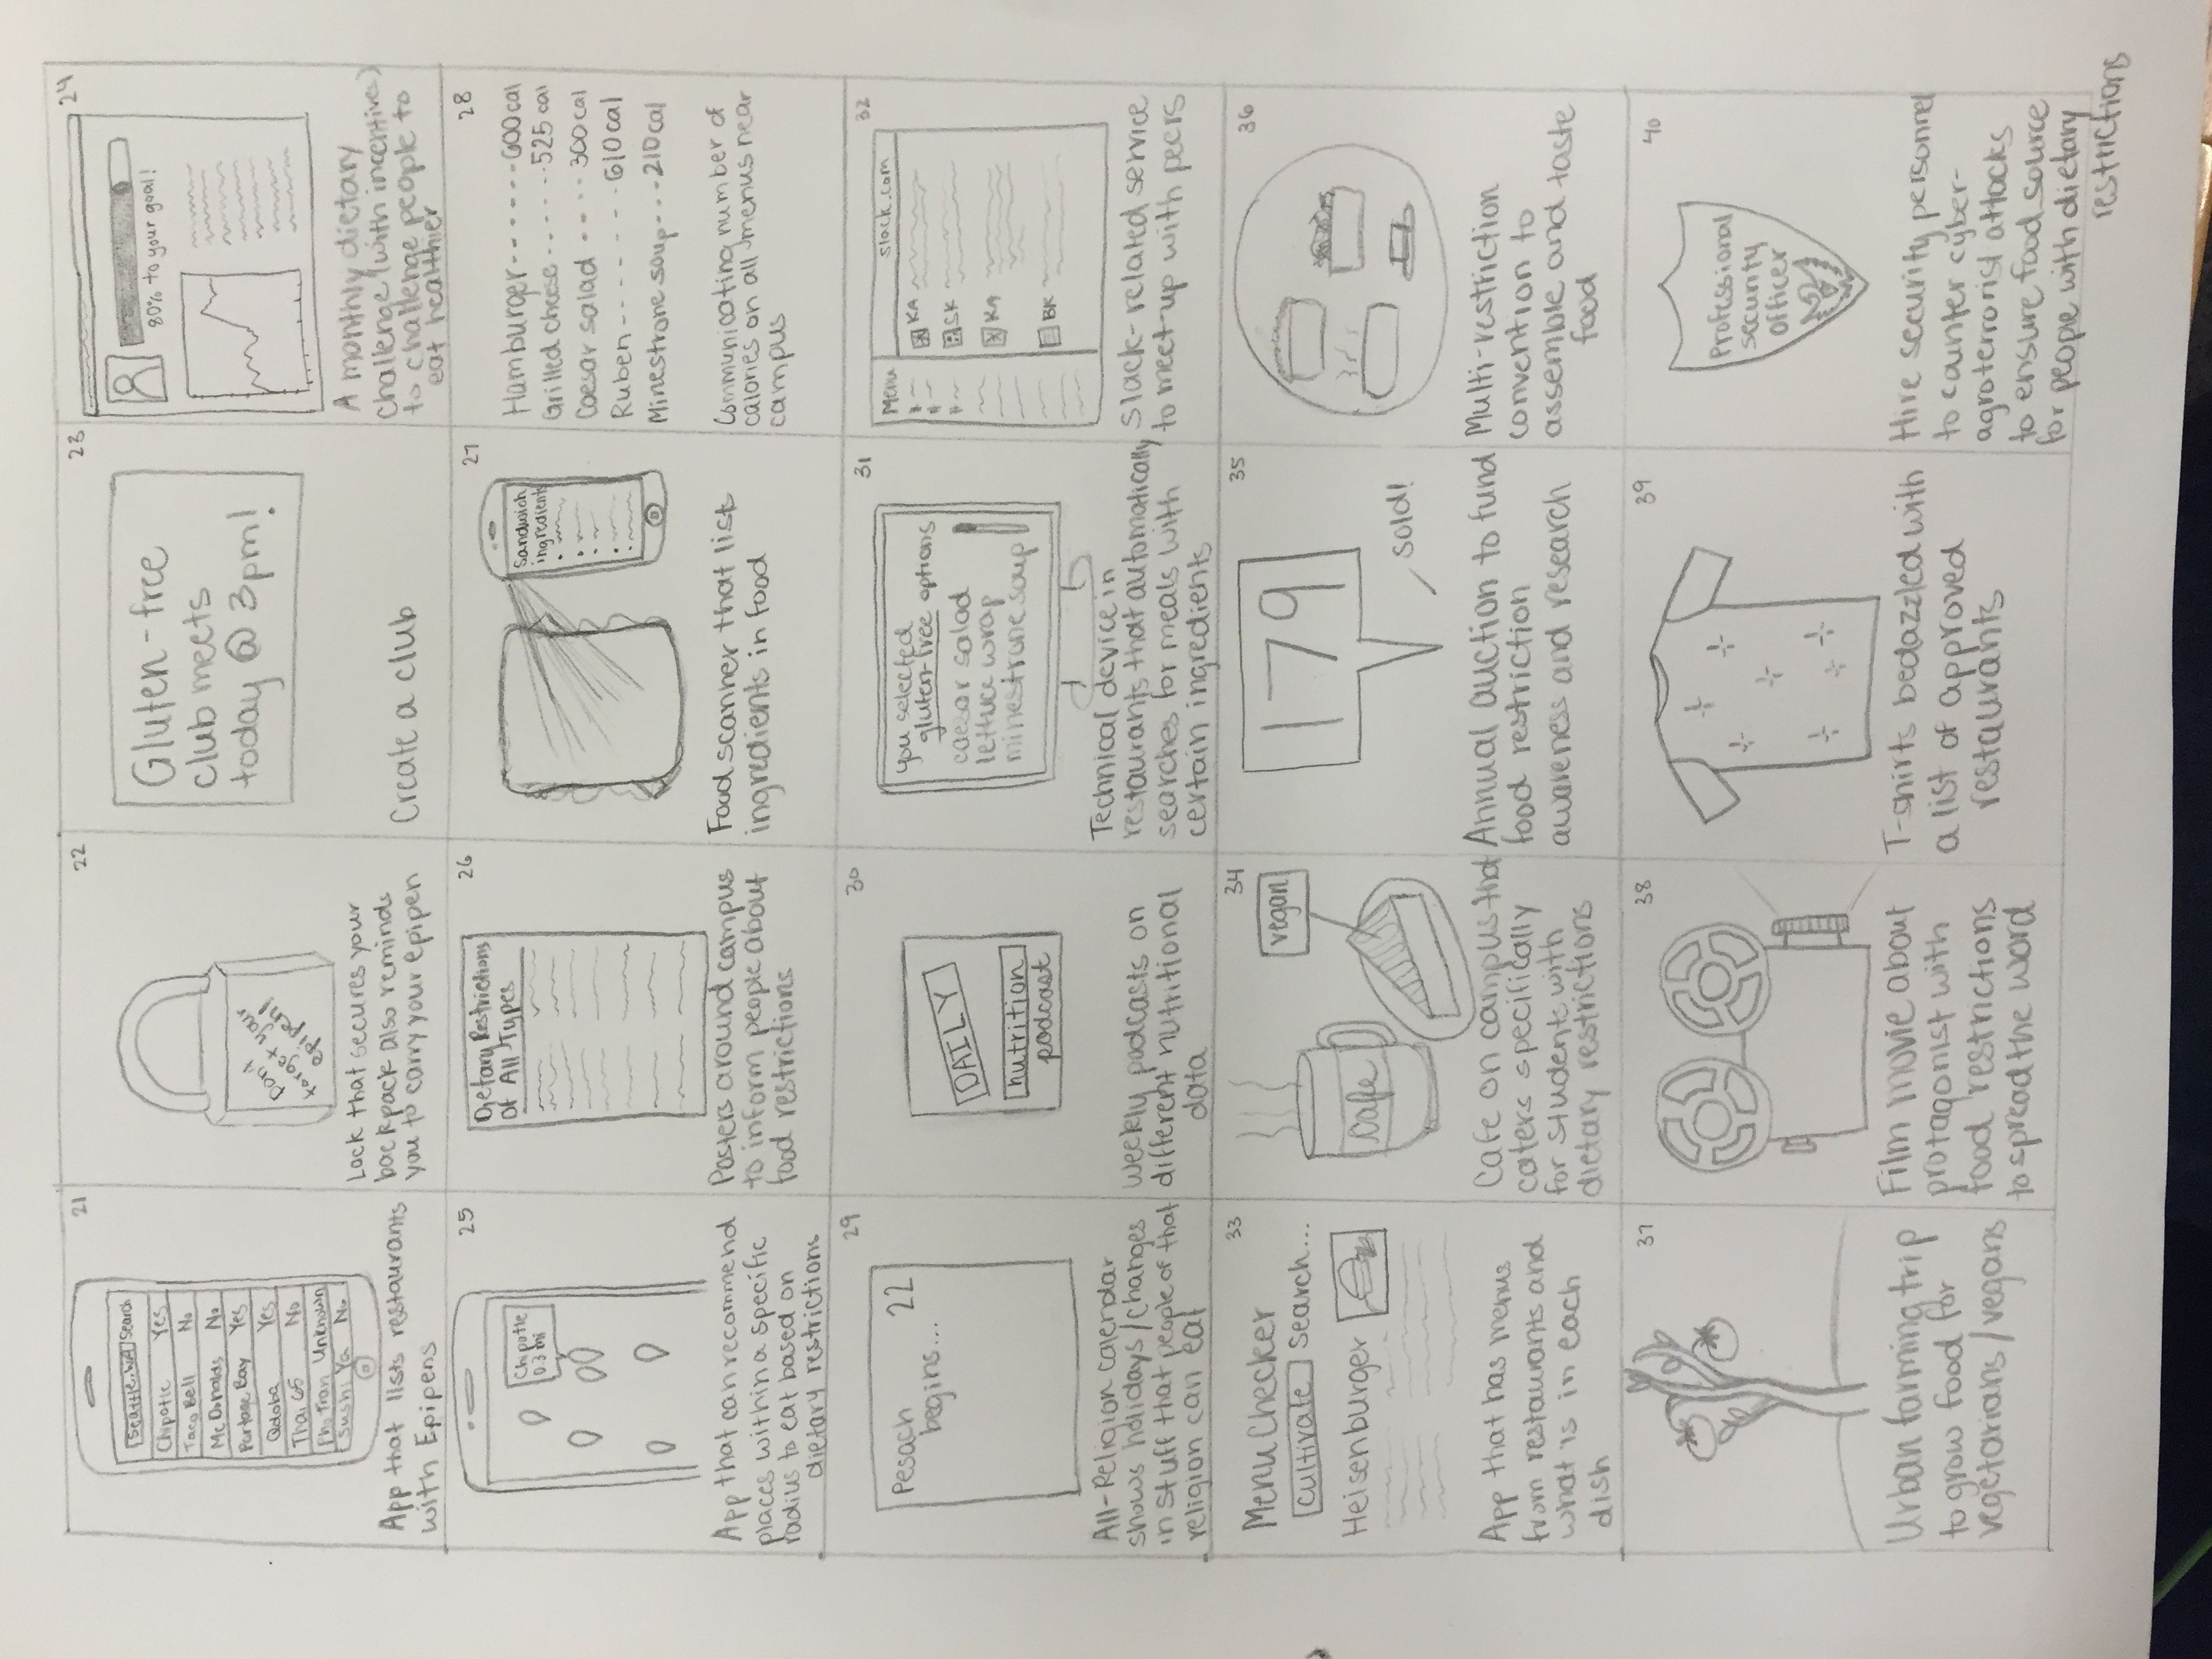 21
Seattle, WA Search
Chipotle Yes
Taco Bell No
McDonalds No
Portage Bay Yes
Qdoba Yes
Thai 65 No
Pho Tran Unknown
Sushi Ya No
App that lists restaurants
with Epipens
22
Don't
forget your
epipen!
Lock that secures your
backpack also reminds
you to carry your epipen
23
Gluten-free
club meets
today @ 3pm!
Create a club
24
80% to your goal!
A monthly dietary
challenge (with incentives)
to challenge people to
eat healthier
25
Chipotle
0.3 mi
App that can recommend
places within a specific
radius to eat based on
dietary restrictions
26
Dietary Restrictions
Of All Types
Posters around campus
to inform people about
food restrictions
27
Sandwich
ingredients
Food scanner that lists
ingredients in food
28
Hamburger------600 cal
Grilled cheese------525 cal
Caesar salad ----300 cal
Ruben-------610 cal
Minestrone soup---210 cal
Communicating number of
calories on all menus near
campus
29
Pesach 22
begins...
All-Religion calendar
shows holidays/changes
in stuff that people of that
religion can eat
30
DAILY
nutrition
podcast
Weekly podcasts on
different nutritional
data
31
you selected
gluten-free options
caesar salad
lettuce wrap
minestrone soup
Technical device in
restaurants that automatically
searches for meals with
certain ingredients
32
Menu
slack.com
KA
SK
KA
BK
Slack-related service
to meet-up with peers
33
Menu Checker
cultivate Search...
Heisenburger
App that has menus
from restaurants and
what is in each
dish
34
vegan
Cafe
Cafe on campus that
caters specifically
for students with
dietary restrictions
35
179
sold!
Annual auction to fund
food restriction
awareness and research
36
Multi-restriction
convention to
assemble and taste
food
37
Urban farming trip
to grow food for
vegetarians/vegans
38
Film movie about
protagonist with
food restrictions
to spread the word
39
T-shirts bedazzled with
a list of approved
restaurants
40
Professional
security
officer
Hire security personnel
to counter cyber-
agroterrorist attacks
to ensure food source
for people with dietary
restrictions